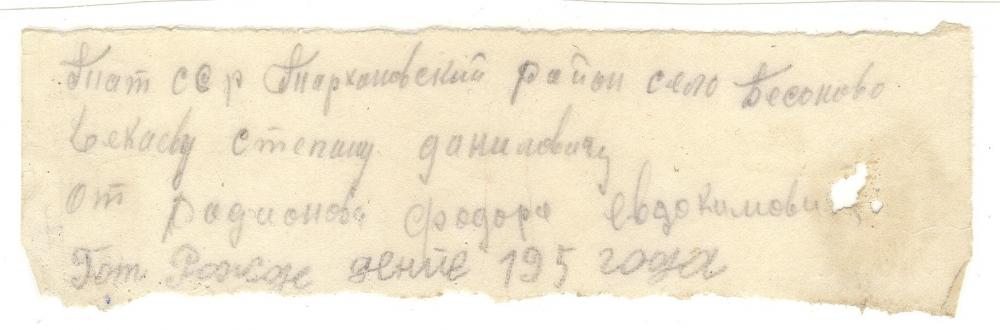 Тат сср Тархановский район село Бесоново
Чекаеву степану даниловичу
от Радионова Федора Евдокимович
Гот Рождение 195 года